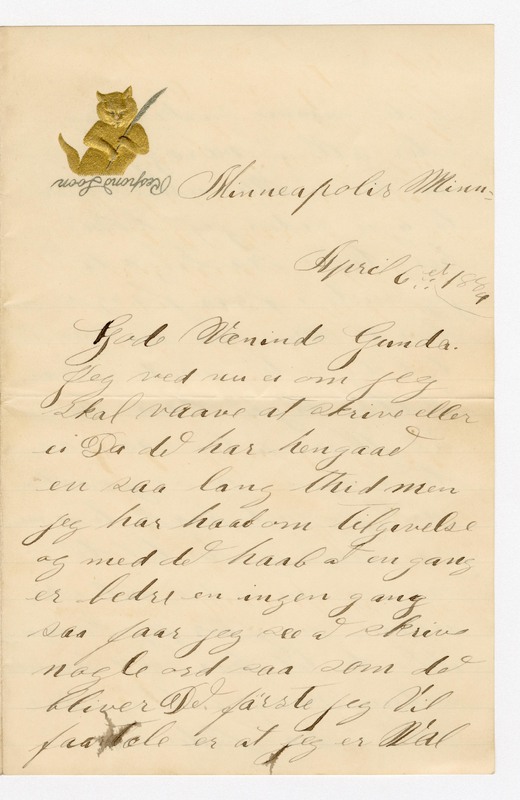 Respond Soon
Minneapolis Minn-
April 6et 1884
God Veenind Gunda.
Jeg ved nu ei om jeg
skal vaave at skrive eller
ei Da dd har hengaad
en saa lang thid men
jeg har haab om tilgivelse
og med dd haab at en gang
er bedre en ingen gang
saa faar jeg see å skrive
nogle ord saa som dd
bliver Dd. förste jeg vil
faartæle er at jeg er Vél